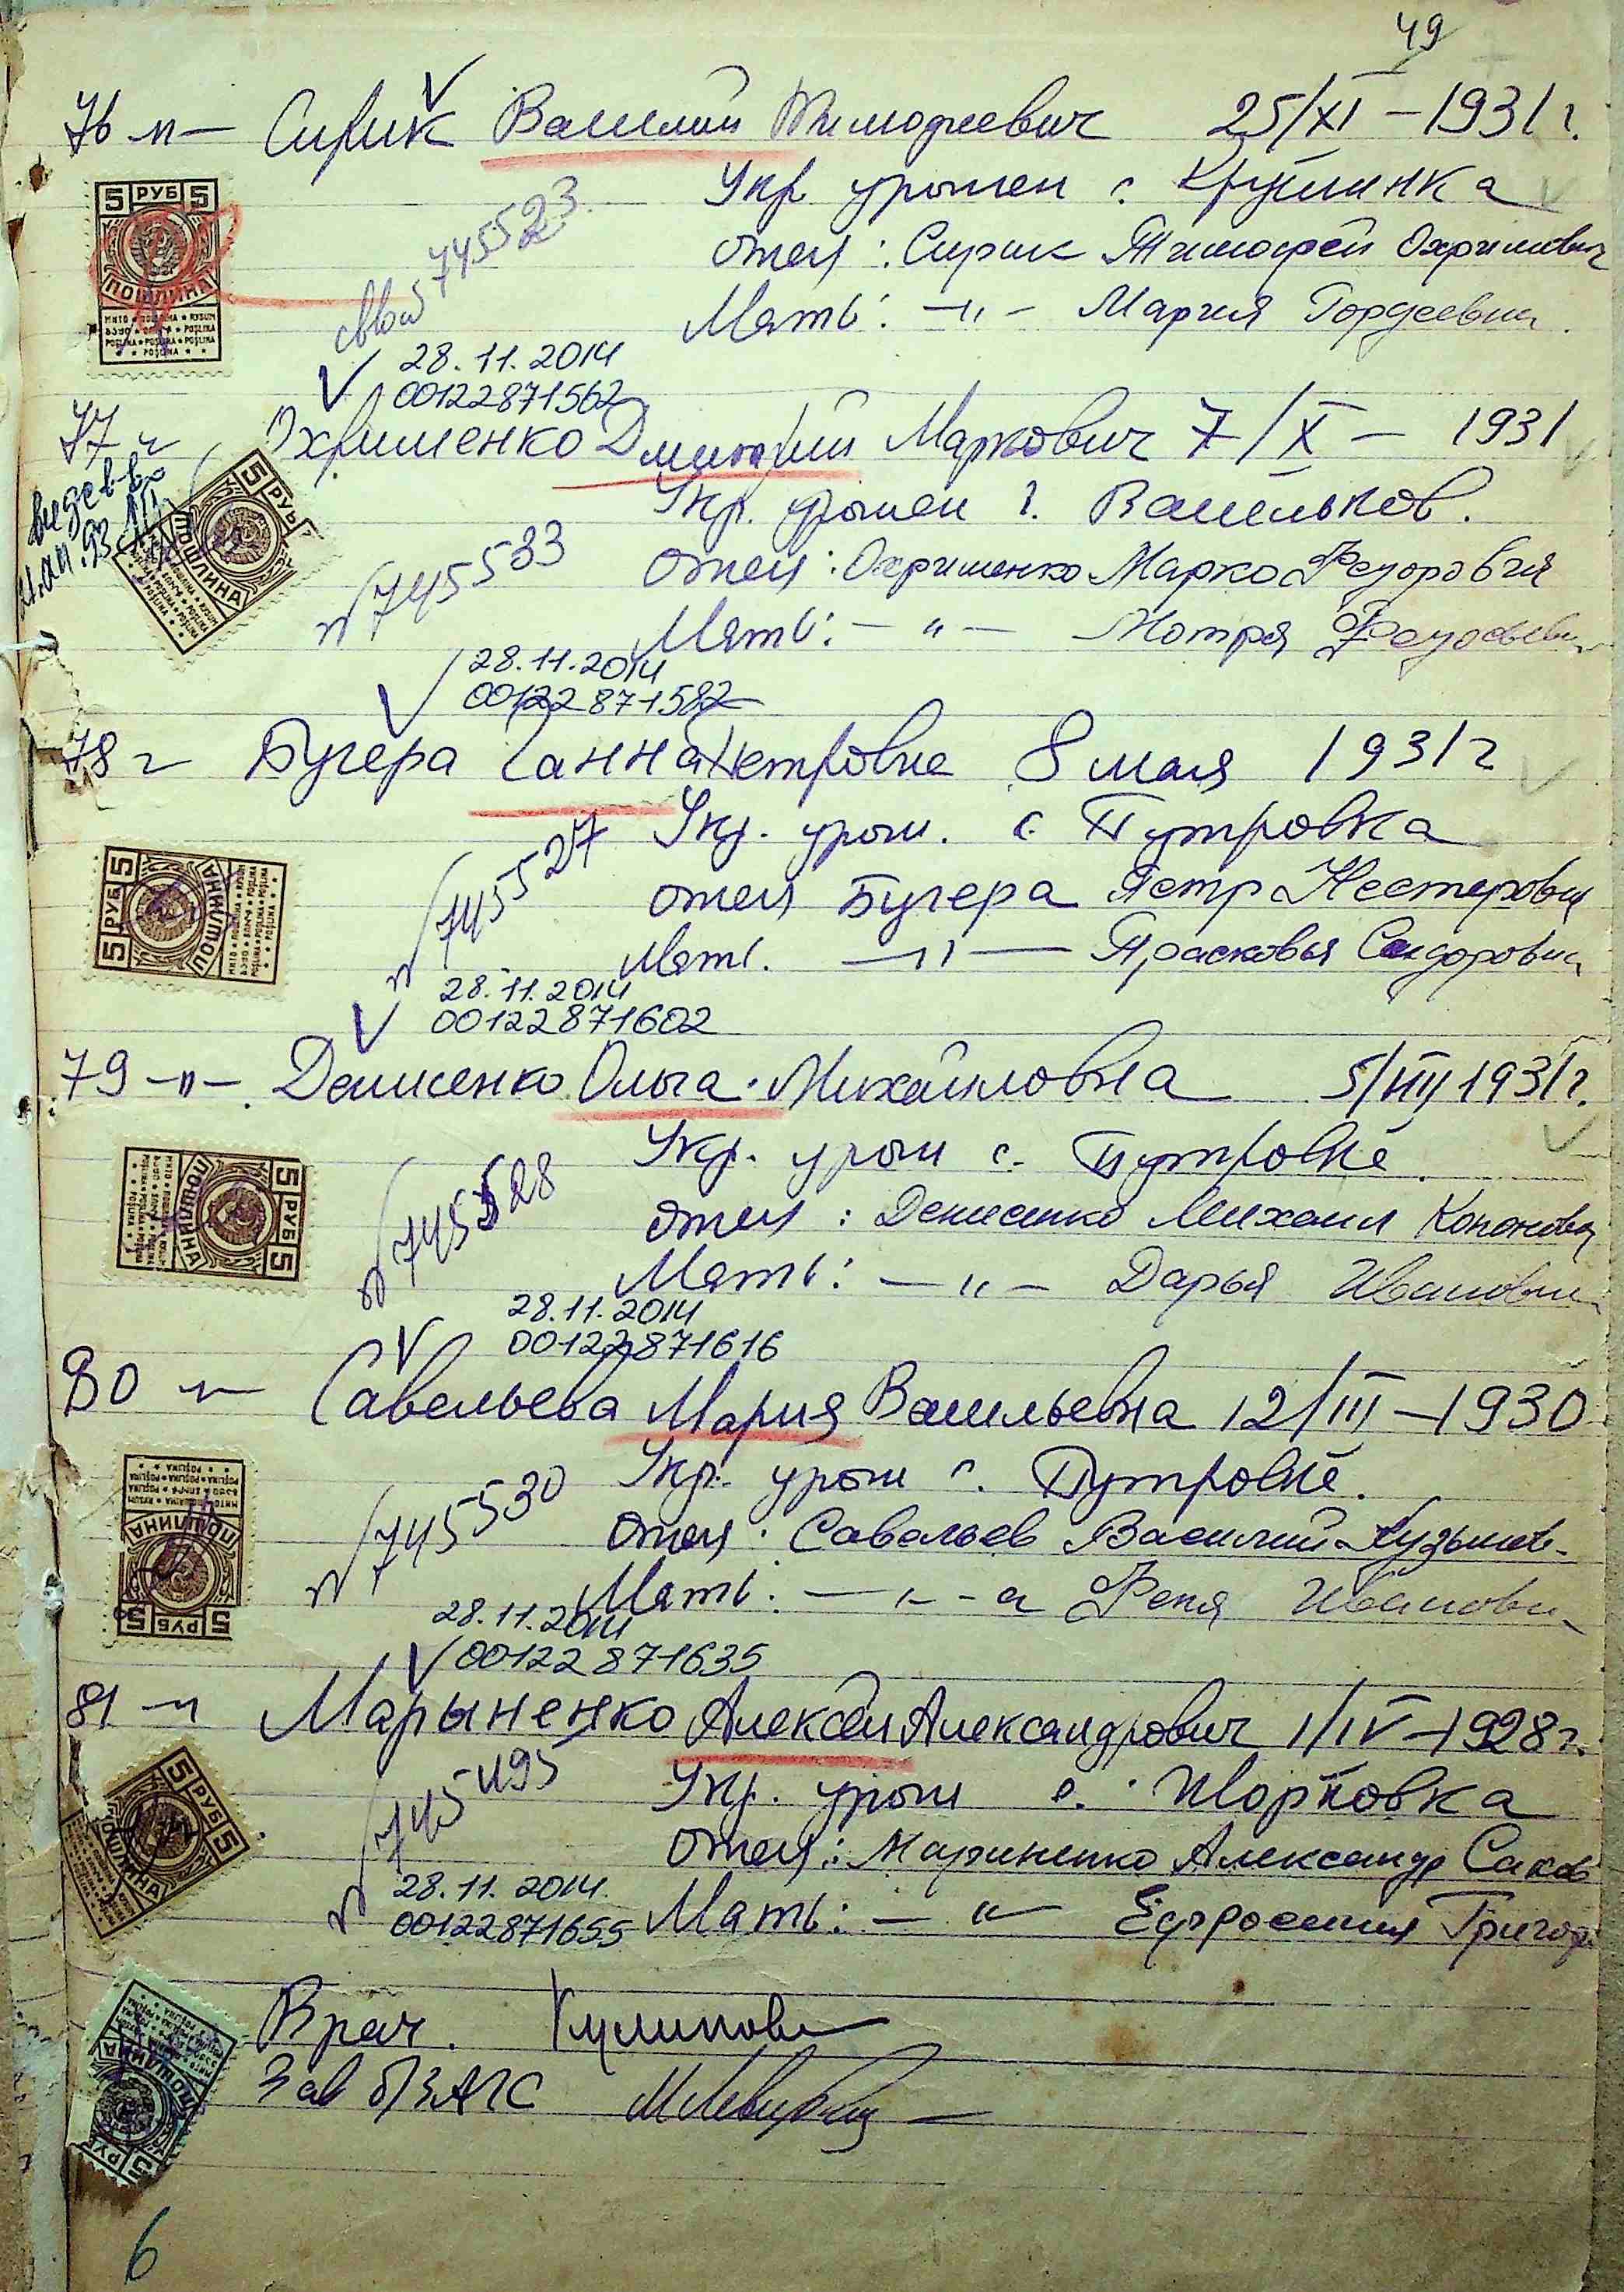 49
76 -"- Сирик Василий Тимофеевич 25/XI - 1931 г.
Укр урожен с. Крушинка
отец: Сирик Тимофей Охримович
Мать: -"- Мария Гордеевна.
5 РУБ 5
ПОШЛИНА
745523
28.11.2014
00122871562
77 Охрименко Дмитрий Маркович 7/X - 1931
Укр. урожен г. Васильков.
Отец: Охрименко Марко Федорович
Мать: -"- Мотря
5 РУБ
ПОШЛИНА
№ 745533
28.11.2014
00122871582
78 Бугера Ганна Петровна 8 мая 1931 г
Укр. урож. с. Путровка
отец Бугера Петр Нестерович
Мать. -"- Прасковья Сидоровна
5 РУБ 5
ПОШЛИНА
№ 745527
28.11.2014
00122871602
79 -"- Денисенко Ольга Михайловна 5/VIII 1931 г.
Укр. урож с. Путровке.
отец: Денисенко Михаил Кононович
Мать: -"- Дарья Ивановна
5 РУБ 5
ПОШЛИНА
№ 745528
28.11.2014
00122871616
80 -"- Савельева Мария Васильевна 12/III - 1930
Укр. урож с. Путровке.
Отец: Савельев Василий Кузьмов-
Мать: -"-а Феня Ивановна
5 РУБ 5
ПОШЛИНА
№ 745530
28.11.2014
00122871635
81 -"- Марыненко Алексей Александрович 1/IV - 1928 г.
Укр. урож с.
Отец: Мариненко Александр Саков
Мать: -"- Ефросиния Григор
5 РУБ 5
ПОШЛИНА
№ 745495
28.11.2014.
00122871655
Врач.
Зав б/ЗАГС
ПОШЛИНА
6